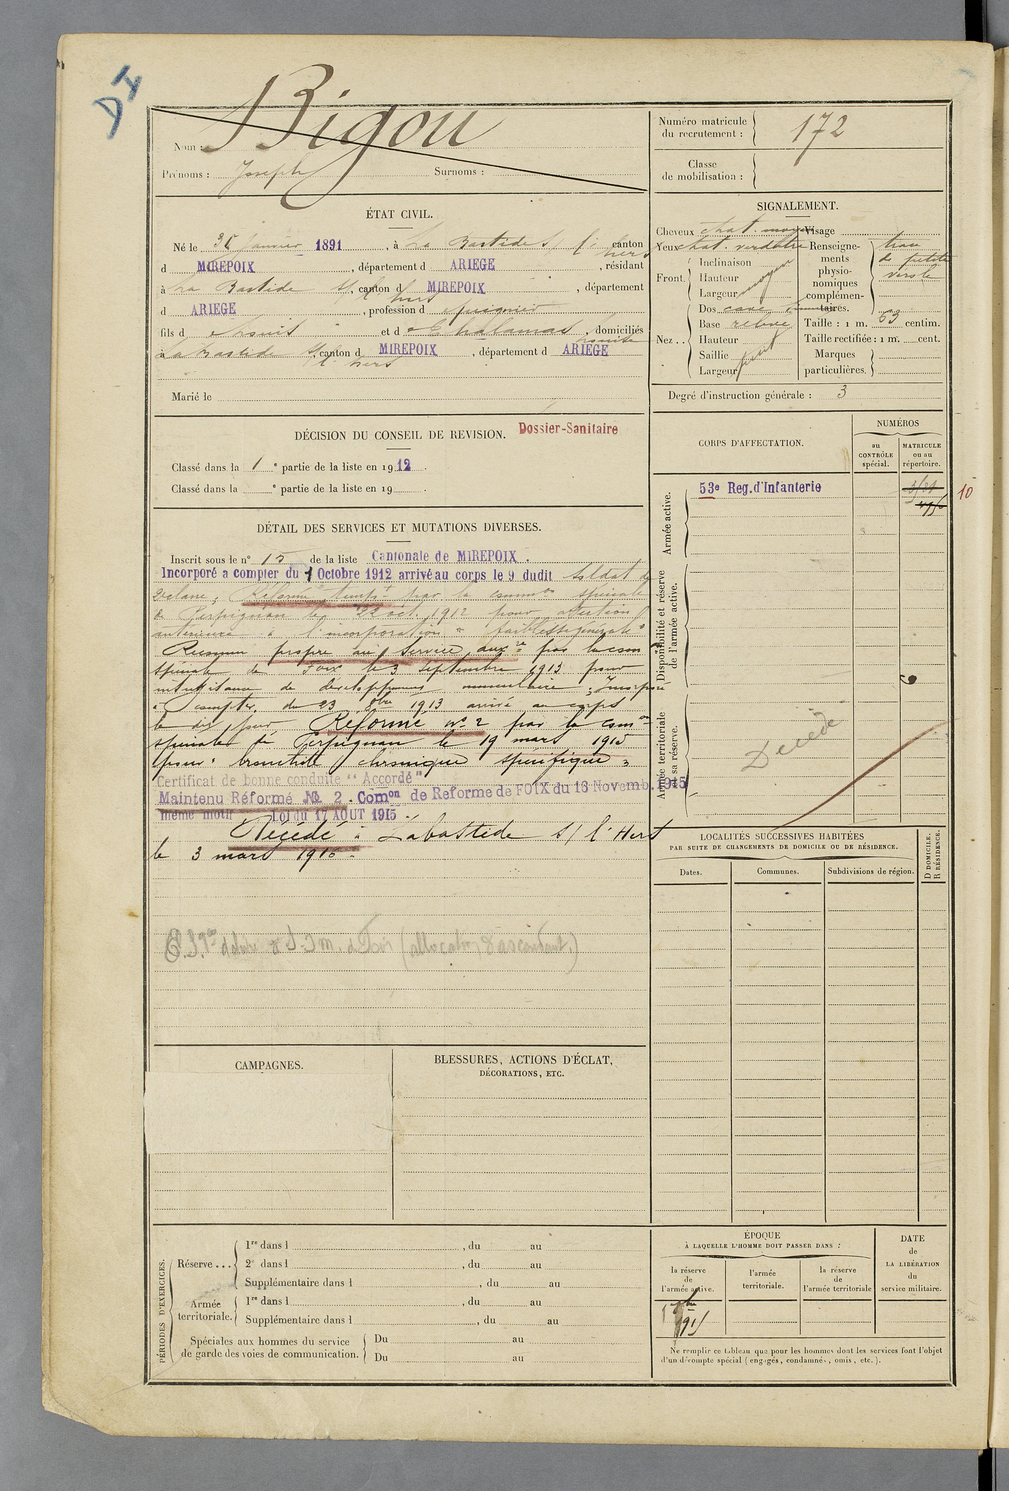 DI
Nom : Bigou
Prénoms : Joseph Surnoms :
Numéro matricule du recrutement : 172
Classe de mobilisation :
ÉTAT CIVIL.
Né le janvier 1891, à La Bastide s/ l'hers canton
d MIREPOIX, département d ARIEGE, résidant
à La Bastide s/ l'hers, canton d MIREPOIX, département
d ARIEGE, profession d
fils d et d , domiciliés
La Bastide s/ l'hers canton d MIREPOIX, département d ARIEGE
Marié le
SIGNALEMENT.
Cheveux chat. moyen Visage
Yeux chat. verdâtre Renseignements physionomiques complémentaires. trace de petite verole
Front. Inclinaison
Hauteur moyen
Largeur
Nez.. Dos cave
Base relevé
Hauteur
Saillie petit
Largeur
Taille : 1 m. 53 centim.
Taille rectifiée : 1 m. cent.
Marques particulières.
Degré d'instruction générale : 3
DÉCISION DU CONSEIL DE REVISION. Dossier-Sanitaire
Classé dans la 1e partie de la liste en 1912.
Classé dans la e partie de la liste en 19 .
DÉTAIL DES SERVICES ET MUTATIONS DIVERSES.
Inscrit sous le n° 15 de la liste Cantonale de MIREPOIX.
Incorporé a compter du 1 Octobre 1912 arrivé au corps le 9 dudit Soldat de
2e classe; Réformé tempre par la common spéciale
de Perpignan le 22 oct. 1912 pour affection
antérieure à l'incorporation "faiblesse générale"
Reconnu propre au service auxre par la comon
spéciale de Foix le 3 septembre 1913 pour
insuffisance de développement musculaire; Incorporé
à compter du 23 8bre 1913 arrivé au corps
le dit jour Réformé n° 2 par la comon
spéciale de Perpignan le 19 mars 1915
pour bronchite chronique spécifique
Certificat de bonne conduite "Accordé"
Maintenu Réformé No 2. Comon de Reforme de FOIX du 13 Novemb. 1915
même motif Loi du 17 AOUT 1915
Décédé à Labastide s/ l'Hers
le 3 mars 1916
(allocation d'ascendant)
CORPS D'AFFECTATION.
NUMÉROS
au CONTRÔLE spécial.
MATRICULE ou au répertoire.
Armée active.
53e Reg. d'Infanterie
10
Disponibilité et réserve de l'armée active.
Armée territoriale et sa réserve.
Décédé
LOCALITÉS SUCCESSIVES HABITÉES
PAR SUITE DE CHANGEMENTS DE DOMICILE OU DE RÉSIDENCE.
Dates. Communes. Subdivisions de région. D DOMICILE. R RÉSIDENCE.
CAMPAGNES.
BLESSURES, ACTIONS D'ÉCLAT,
DÉCORATIONS, ETC.
PÉRIODES D'EXERCICES.
Réserve ...
1re dans l , du au
2e dans l , du au
Supplémentaire dans l , du au
Armée territoriale.
1re dans l , du au
Supplémentaire dans l , du au
Spéciales aux hommes du service de garde des voies de communication.
Du au
Du au
ÉPOQUE
À LAQUELLE L'HOMME DOIT PASSER DANS :
la réserve de l'armée active.
l'armée territoriale.
la réserve de l'armée territoriale
DATE de LA LIBÉRATION du service militaire.
1915
Ne remplir ce tableau que pour les hommes dont les services font l'objet
d'un décompte spécial (engagés, condamnés, omis, etc.).